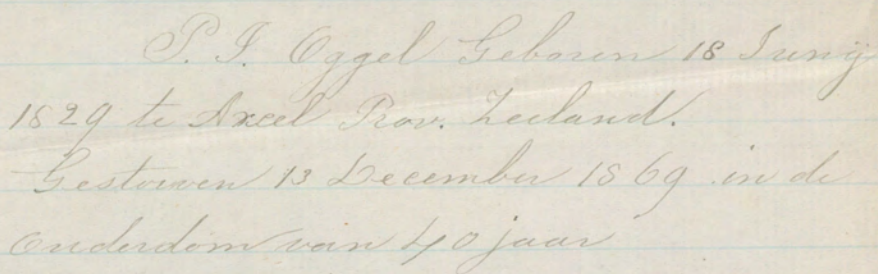 P. I. Oggel Geboren 18 Junij
1829 te Axel Prov. Zeeland.
Gestorven 13 December 1869 in de
Ouderdom van 40 jaar